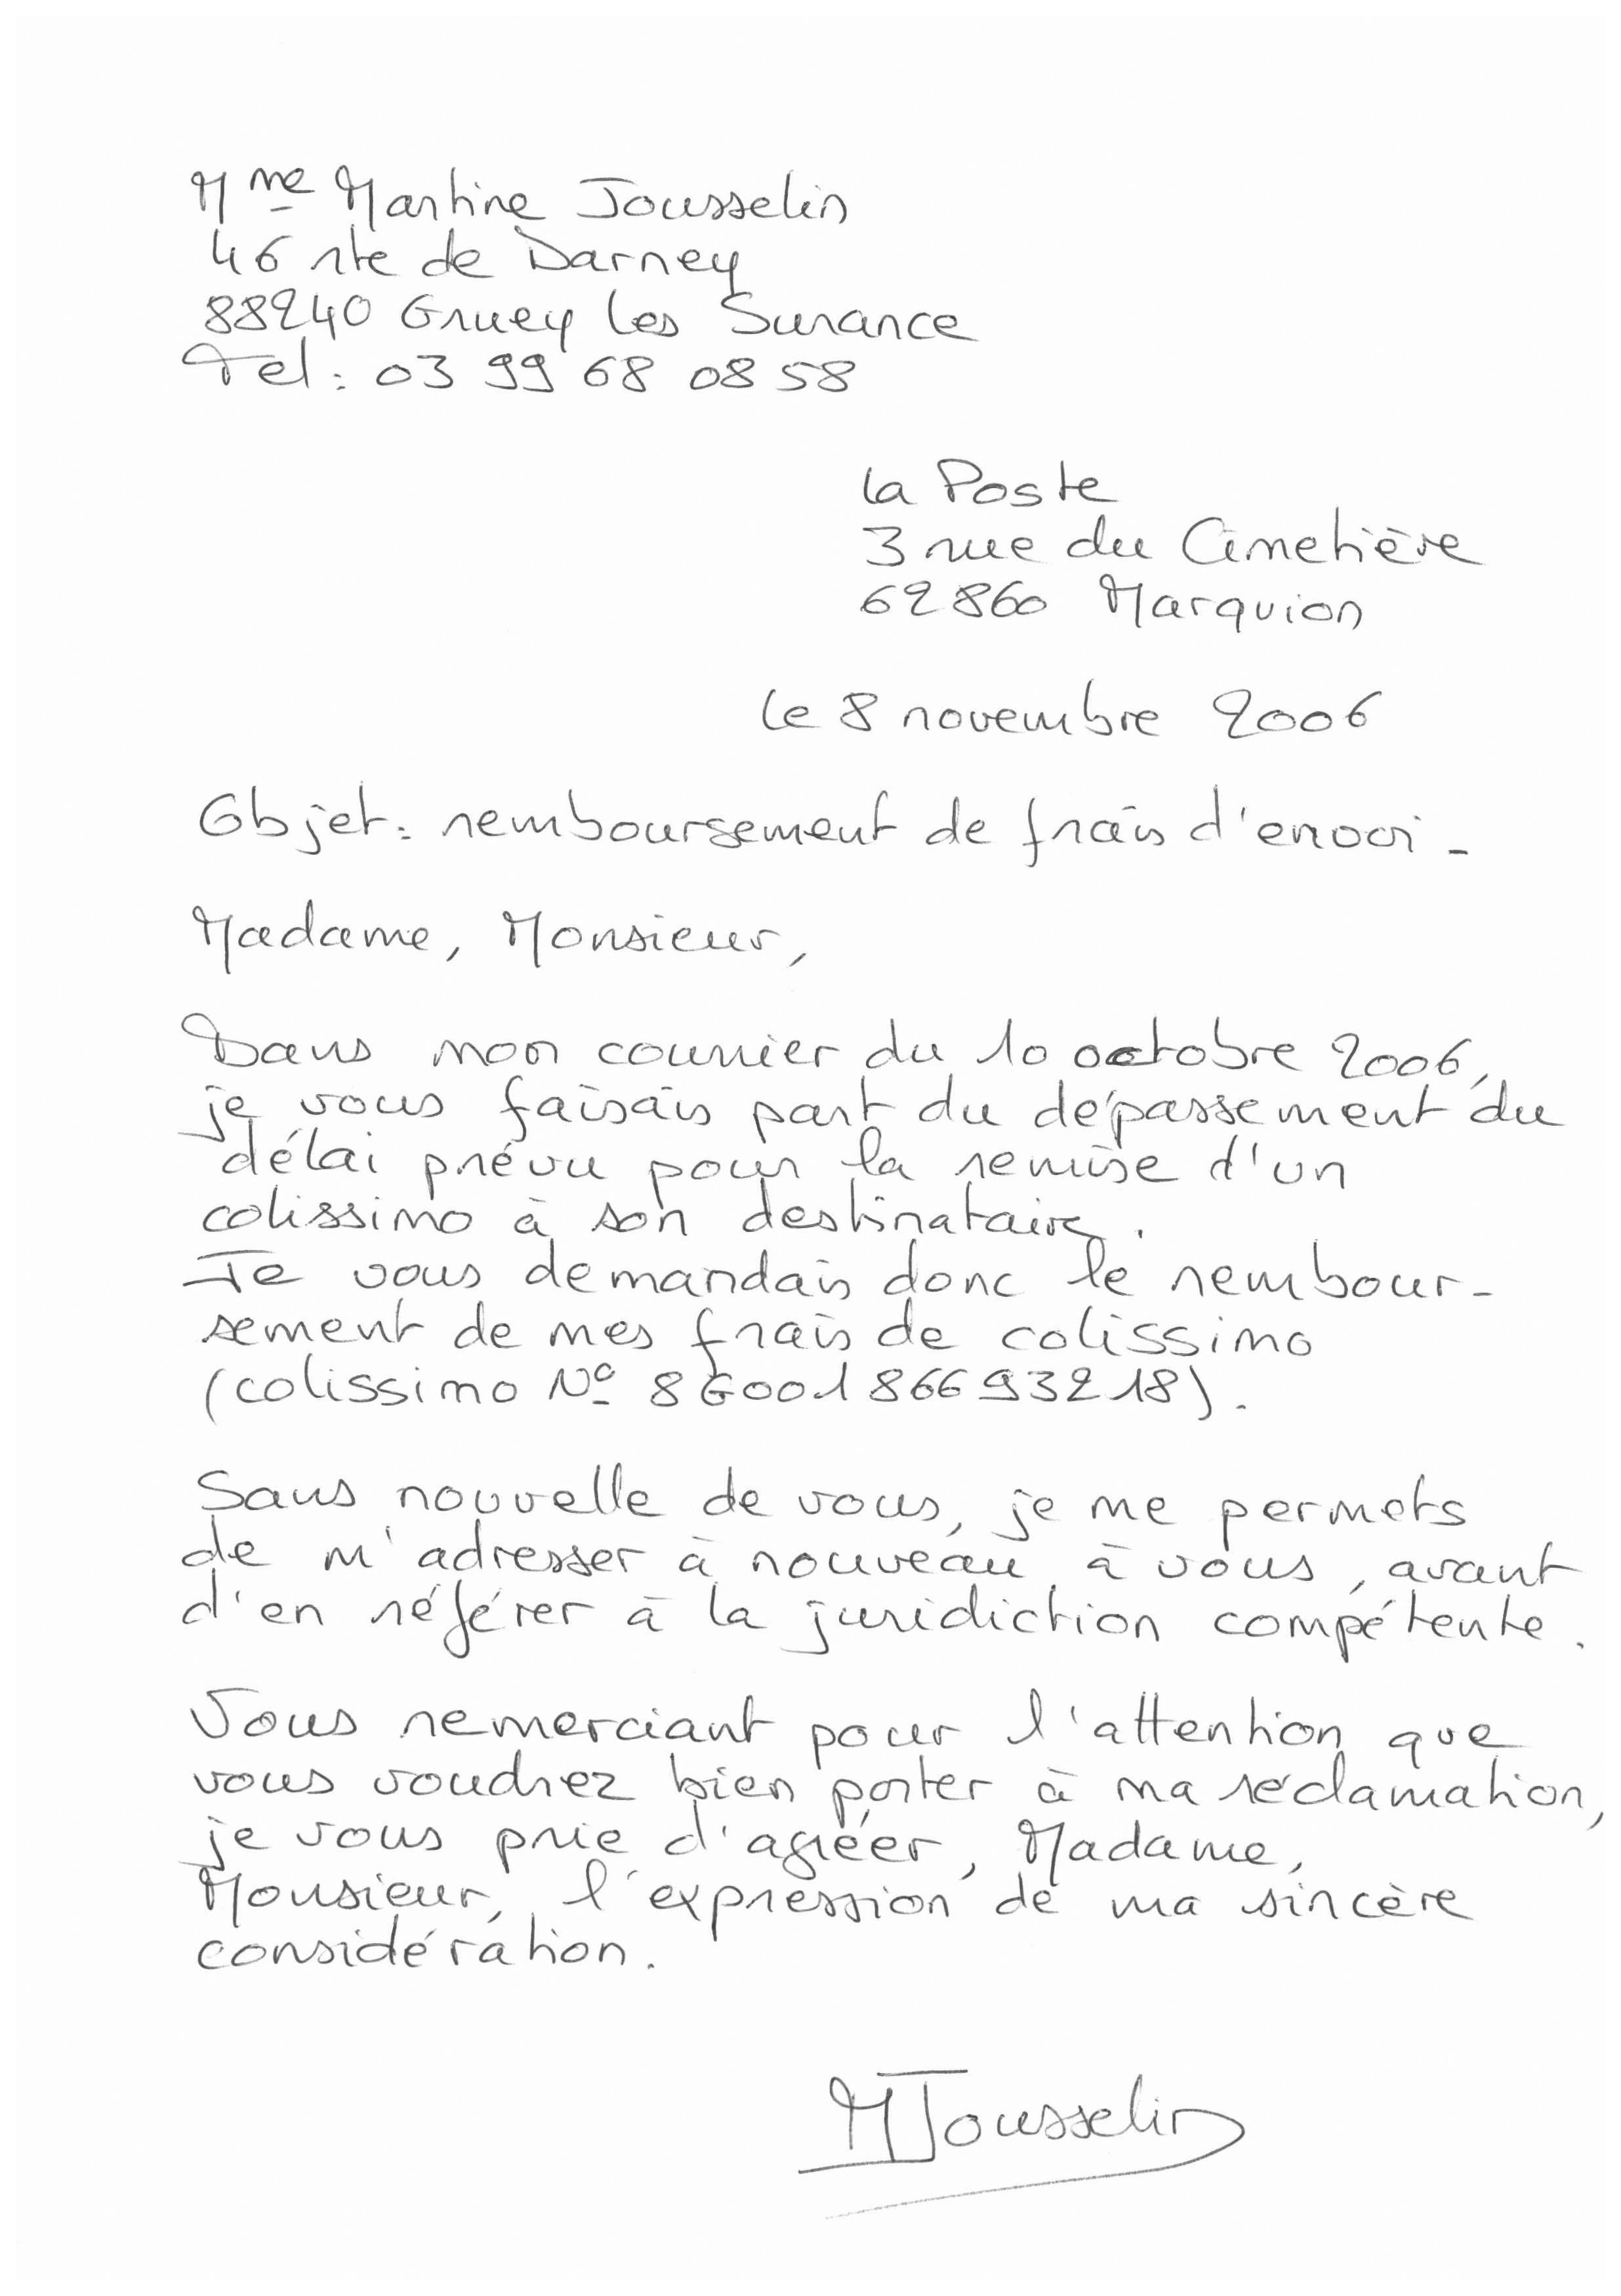 Mme Martine Jousselin
46 rte de Darney
88240 Gruey les Surance
Tel : 03 99 68 08 58
La Poste
3 rue du Cimetière
62860 Marquion
le 8 novembre 2006
Objet : remboursement de frais d'envoi -
Madame, Monsieur,
Dans mon courrier du 10 octobre 2006,
je vous faisais part du dépassement du
délai prévu pour la remise d'un
colissimo à son destinataire.
Je vous demandais donc le rembour-
sement de mes frais de colissimo
(colissimo N° 8G00186693218).
Sans nouvelle de vous, je me permets
de m'adresser à nouveau à vous, avant
d'en référer à la juridiction compétente.
Vous remerciant pour l'attention que
vous voudrez bien porter à ma réclamation,
je vous prie d'agréer, Madame,
Monsieur, l'expression de ma sincère
considération.
MJousselin